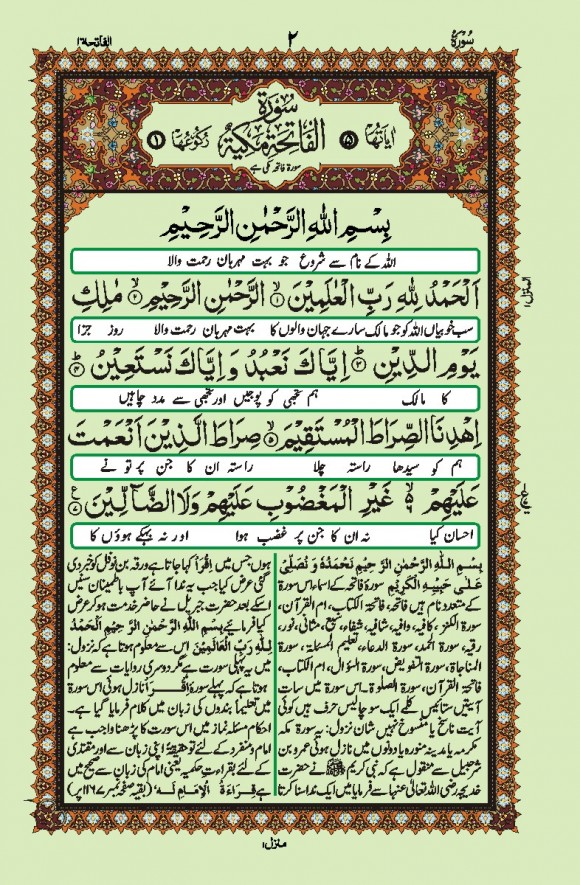 سورۃ
۲
الفاتحۃ۱
سُوْرَةُ
اٰیاتھا ۵ الْفَاتِحَةِ مَكِّيَّةٌ رکوعھا ۱
سورۃ فاتحہ مکی ہے
بِسْمِ اللّٰهِ الرَّحْمٰنِ الرَّحِيْمِ
اللہ کے نام سے شروع جو بہت مہربان رحمت والا
اَلْحَمْدُ لِلّٰهِ رَبِّ الْعٰلَمِيْنَ ۱ الرَّحْمٰنِ الرَّحِيْمِ ۲ مٰلِكِ
سب خوبیاں اللہ کو جو مالک سارے جہان والوں کا بہت مہربان رحمت والا روز جزا
يَوْمِ الدِّيْنِ ۳ اِيَّاكَ نَعْبُدُ وَاِيَّاكَ نَسْتَعِيْنُ ۴
کا مالک ہم تجھی کو پوجیں اور تجھی سے مدد چاہیں
اِهْدِنَا الصِّرَاطَ الْمُسْتَقِيْمَ ۵ صِرَاطَ الَّذِيْنَ اَنْعَمْتَ
ہم کو سیدھا راستہ چلا راستہ ان کا جن پر تو نے
عَلَيْهِمْ ۶ غَيْرِ الْمَغْضُوْبِ عَلَيْهِمْ وَلَا الضَّآلِّيْنَ ۷
احسان کیا نہ ان کا جن پر غضب ہوا اور نہ بہکے ہوؤں کا
المنزل۱
بِسْمِ اللّٰهِ الرَّحْمٰنِ الرَّحِيْمِ نَحْمَدُهٗ وَ نُصَلِّیْ
عَلٰی حَبِيْبِهِ الْكَرِيْمِ سورۃ فاتحہ کے اسماء، اس سورۃ
کے متعدد نام ہیں فاتحہ، فاتحۃ الکتاب، ام القرآن،
سورۃ الکنز، کافیہ، وافیہ، شافیہ، شفاء، سبع مثانی، نور،
رقیہ، سورۃ الحمد، سورۃ الدعاء، تعلیم المسئلہ، سورۃ
المناجاۃ، سورۃ التفویض، سورۃ السؤال، ام الکتاب،
فاتحۃ القرآن، سورۃ الصلوۃ۔ اس سورۃ میں سات
آیتیں ستائیس کلمے ایک سو چالیس حرف ہیں کوئی
آیت ناسخ یا منسوخ نہیں شان نزول: یہ سورۃ مکہ
مکرمہ یا مدینہ منورہ یا دونوں میں نازل ہوئی عمرو بن
شرحبیل سے منقول ہے کہ نبی کریم ﷺ نے حضرت
خدیجہ رضی اللہ تعالیٰ عنہا سے فرمایا میں ایک ندا سنا کرتا
ہوں جس میں اِقْرَاْ کہا جاتا ہے ورقہ بن نوفل کو خبر دی
گئی عرض کیا جب یہ ندا آئے آپ باطمینان سنیں
اسکے بعد حضرت جبریل نے حاضر خدمت ہو کر عرض
کیا فرمائیے بِسْمِ اللّٰهِ الرَّحْمٰنِ الرَّحِيْمِ اَلْحَمْدُ
لِلّٰهِ رَبِّ الْعَالَمِيْنَ اس سے معلوم ہوتا ہے کہ نزول:
میں یہ پہلی سورت ہے مگر دوسری روایات سے معلوم
ہوتا ہے کہ پہلے سورۃ اِقْرَاْ نازل ہوئی اس سورۃ
میں تعلیماً بندوں کی زبان میں کلام فرمایا گیا ہے۔
احکام مسئلہ نماز میں اس سورت کا پڑھنا واجب ہے
امام و منفرد کے لئے تو حقیقۃً اپنی زبان سے اور مقتدی
کے لئے بقراءت حکمیہ یعنی امام کی زبان سے صحیح میں
ہے قِرَاءَةُ الْاِمَامِ لَهٗ (بقیہ صفحہ نمبر ۱۱۶۷ پر)
منزل۱